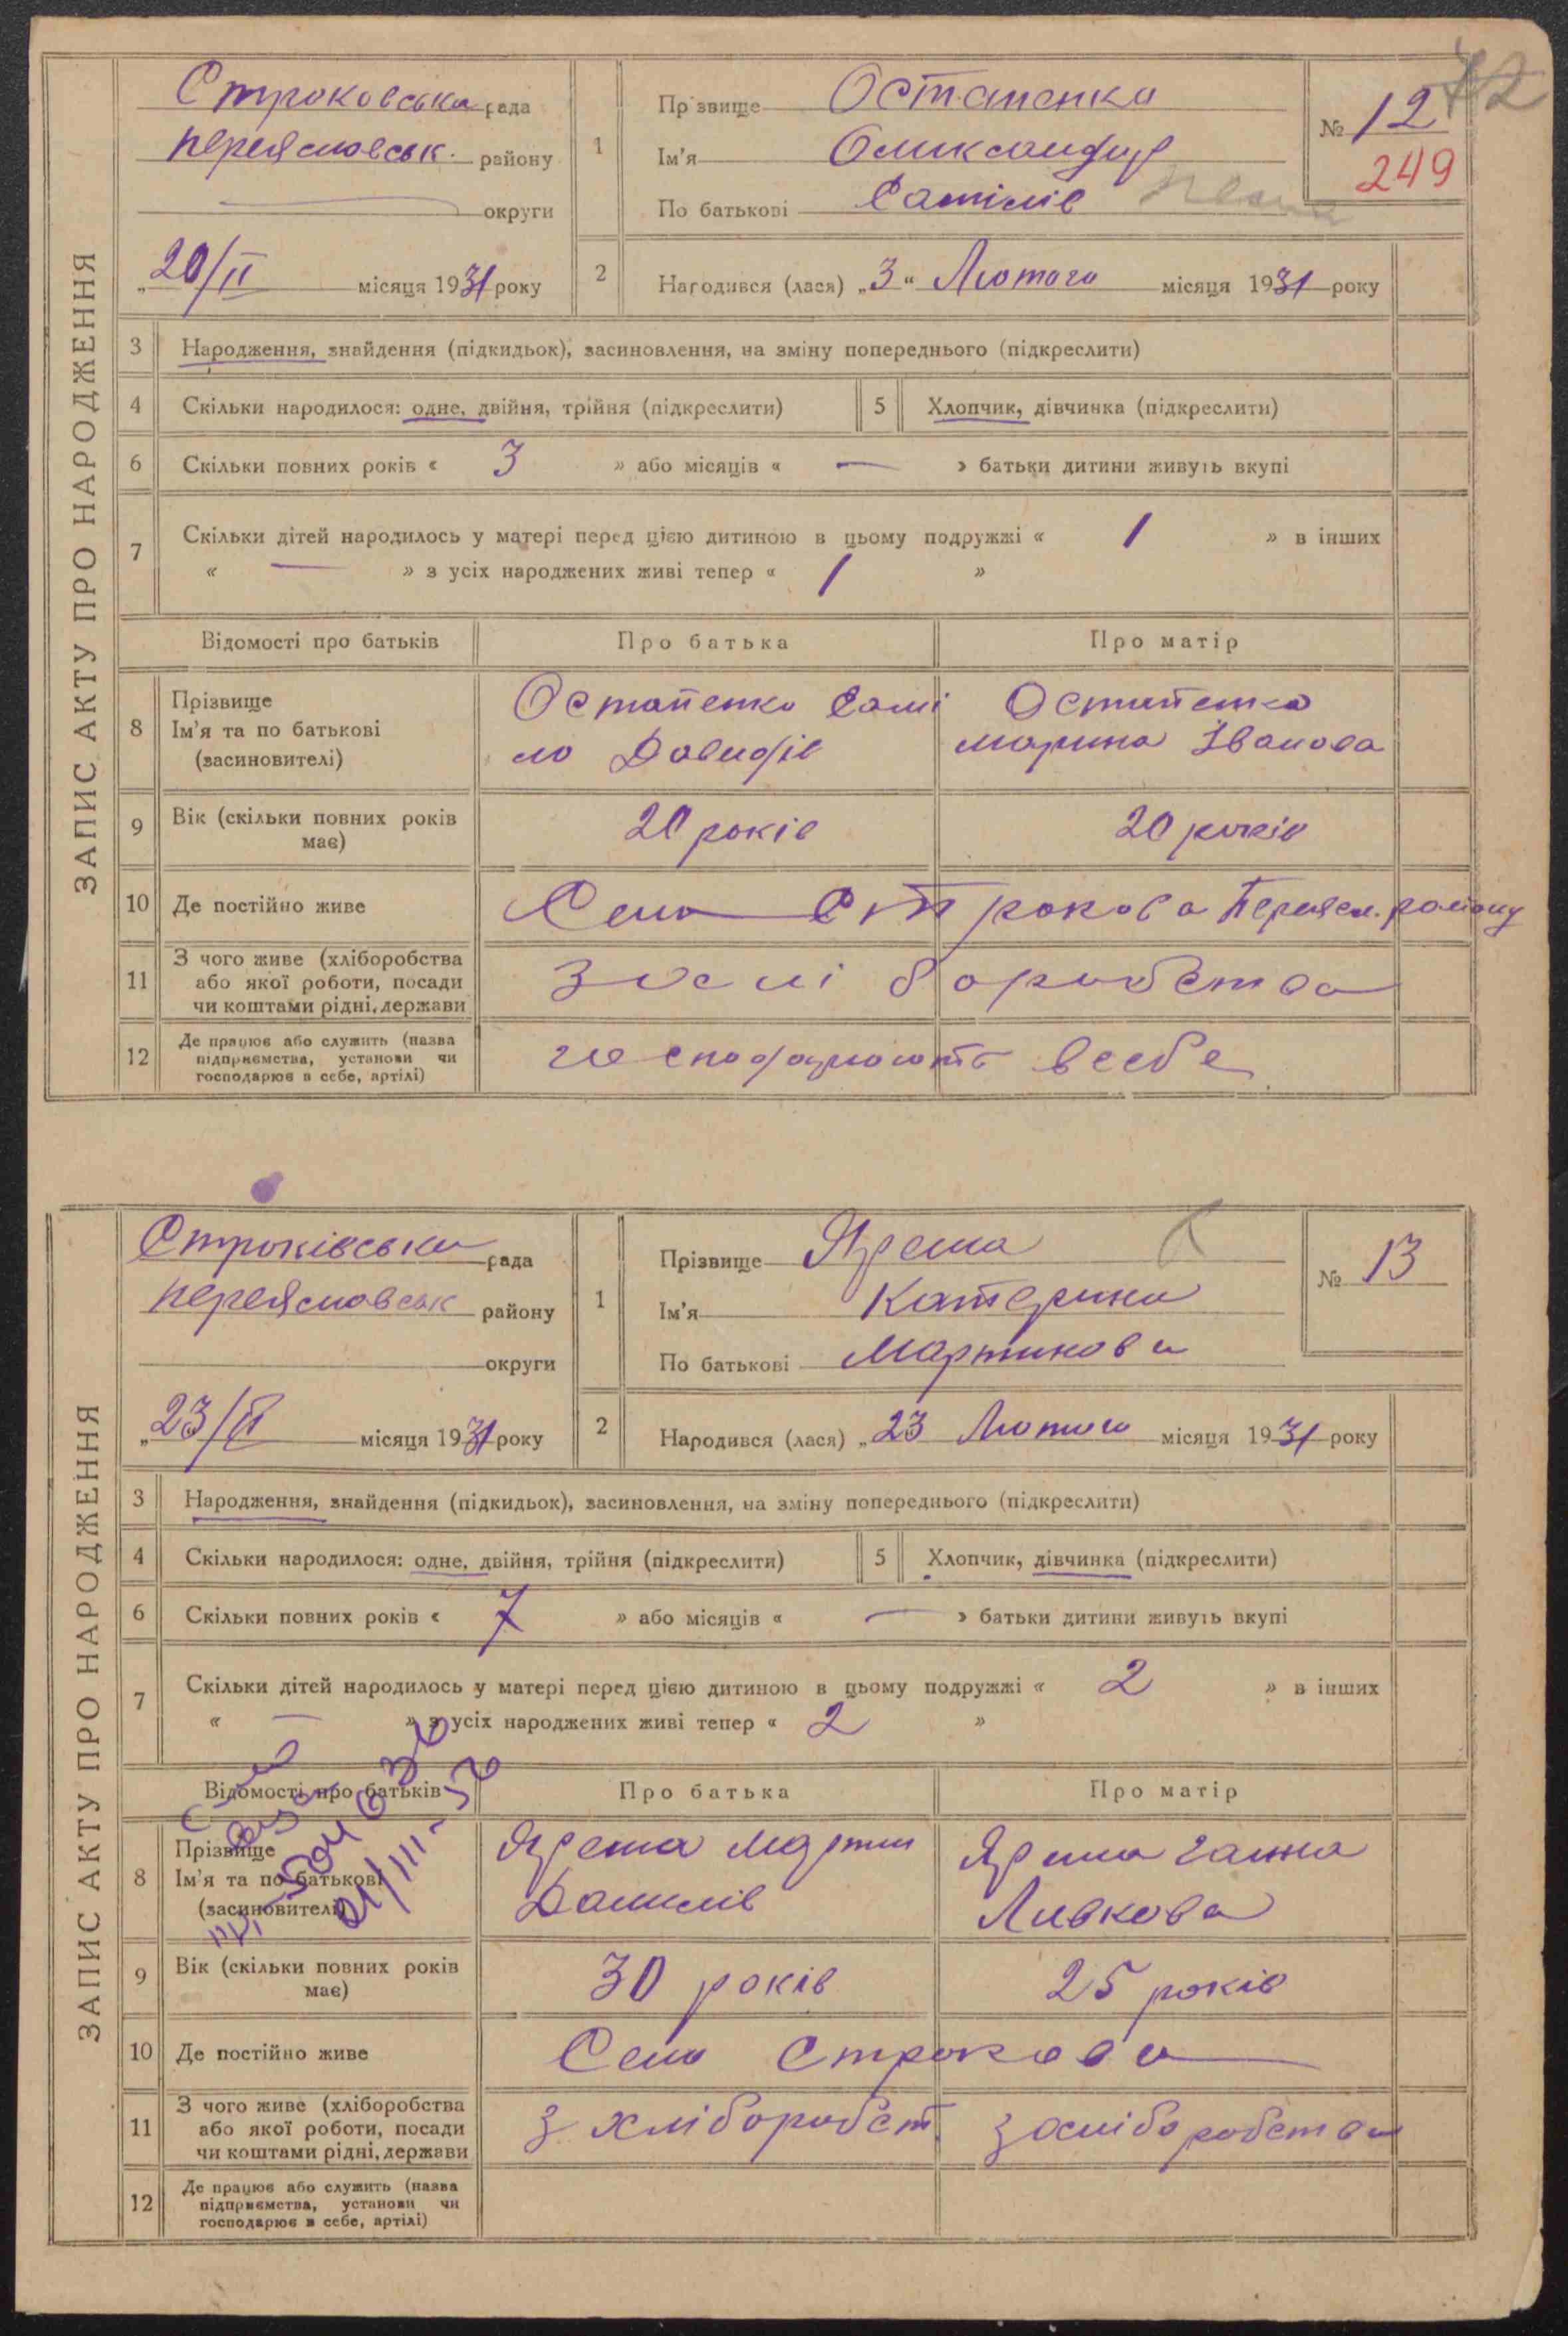 ЗАПИС АКТУ ПРО НАРОДЖЕННЯ
Строковська рада
Переяславськ. району
округи
„20/II місяця 1931 року
1
Прізвище Остапенко
Ім'я Олександр
По батькові Самілів
№ 12
249
2
Народився (лася) „3“ Лютого місяця 1931 року
3 Народження, знайдення (підкидьок), засиновлення, на зміну попереднього (підкреслити)
4 Скільки народилося: одне, двійня, трійня (підкреслити) 5 Хлопчик, дівчинка (підкреслити)
6 Скільки повних років « 3 » або місяців « — » батьки дитини живуть вкупі
7 Скільки дітей народилось у матері перед цією дитиною в цьому подружжі « 1 » в інших
« — » з усіх народжених живі тепер « 1 »
Відомості про батьків Про батька Про матір
8 Прізвище
Ім'я та по батькові
(засиновителі)
Остапенко Самі
ло Давидів
Остапенко
Марина Іванова
9 Вік (скільки повних років
має)
20 років 20 років
10 Де постійно живе Село Строкова Переясл. району
11 З чого живе (хліборобства
або якої роботи, посади
чи коштами рідні, держави
з хліборобства
12 Де працює або служить (назва
підприємства, установи чи
господарює в себе, артілі)
господарюють в себе
ЗАПИС АКТУ ПРО НАРОДЖЕННЯ
Строківська рада
Переяславськ району
округи
„23/II місяця 1931 року
1
Прізвище Ярема
Ім'я Катерина
По батькові Мартинова
№ 13
2
Народився (лася) „23 Лютого місяця 1931 року
3 Народження, знайдення (підкидьок), засиновлення, на зміну попереднього (підкреслити)
4 Скільки народилося: одне, двійня, трійня (підкреслити) 5 Хлопчик, дівчинка (підкреслити)
6 Скільки повних років « 7 » або місяців « — » батьки дитини живуть вкупі
7 Скільки дітей народилось у матері перед цією дитиною в цьому подружжі « 2 » в інших
« — » з усіх народжених живі тепер « 2 »
Відомості про батьків Про батька Про матір
8 Прізвище
Ім'я та по батькові
(засиновителі)
Ярема Мартин
Данилів
Ярема Ганна
Левкова
9 Вік (скільки повних років
має)
30 років 25 років
10 Де постійно живе Село Строкова
11 З чого живе (хліборобства
або якої роботи, посади
чи коштами рідні, держави
з хліборобст з хліборобства
12 Де працює або служить (назва
підприємства, установи чи
господарює в себе, артілі)